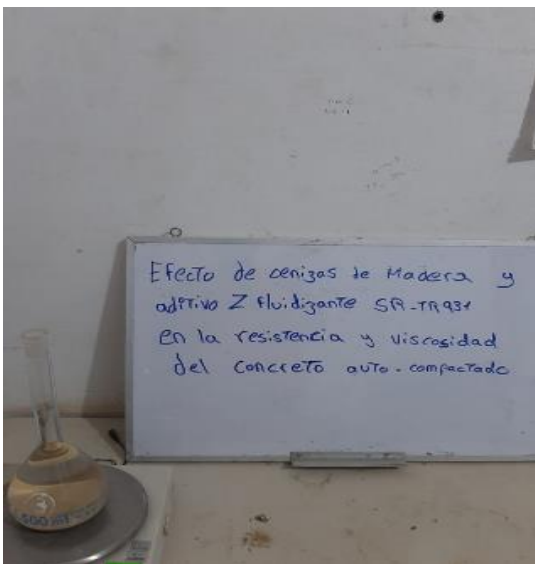 Efecto de cenizas de Madera y
aditivo Z fluidizante SR-TR931
en la resistencia y viscosidad
del concreto auto-compactado
500 ml